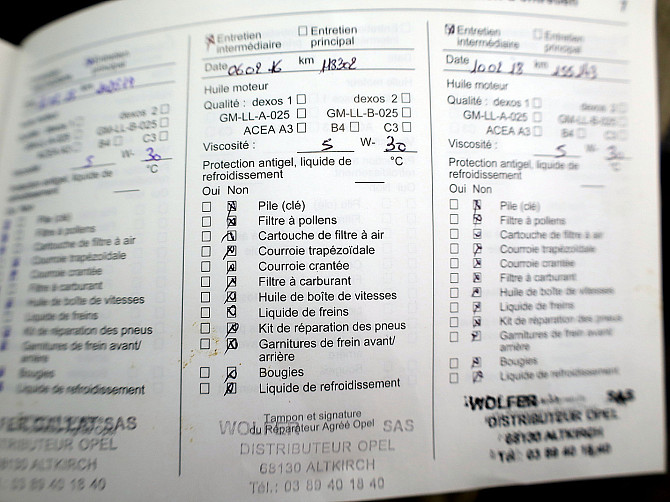 Entretien
principal
dexos 2
GM-LL-B-025
B4 C3
5 W- 30
Protection antigel, liquide de
refroidissement °C
Non
Pile (clé)
Filtre à pollens
Cartouche de filtre à air
Courroie trapézoïdale
Courroie crantée
Filtre à carburant
Huile de boîte de vitesses
Liquide de freins
Kit de réparation des pneus
Garnitures de frein avant/
arrière
Bougies
Liquide de refroidissement
SAS
DISTRIBUTEUR OPEL
68130 ALTKIRCH
03 89 40 18 40
Entretien
intermédiaire
Entretien
principal
Date 06.02 16 km 118302
Huile moteur
Qualité : dexos 1 dexos 2
GM-LL-A-025 GM-LL-B-025
ACEA A3 B4 C3
Viscosité : 5 W- 30
Protection antigel, liquide de
refroidissement °C
Oui Non
Pile (clé)
Filtre à pollens
Cartouche de filtre à air
Courroie trapézoïdale
Courroie crantée
Filtre à carburant
Huile de boîte de vitesses
Liquide de freins
Kit de réparation des pneus
Garnitures de frein avant/
arrière
Bougies
Liquide de refroidissement
Tampon et signature
du Réparateur Agréé Opel
SAS
DISTRIBUTEUR OPEL
68130 ALTKIRCH
Tél.: 03 89 40 18 40
7
Entretien
intermédiaire
Entretien
principal
Date 10.02 18 km
Huile moteur
Qualité : dexos 1 dexos 2
GM-LL-A-025 GM-LL-B-025
ACEA A3 B4 C3
Viscosité : 5 W- 30
Protection antigel, liquide de
refroidissement °C
Oui Non
Pile (clé)
Filtre à pollens
Cartouche de filtre à air
Courroie trapézoïdale
Courroie crantée
Filtre à carburant
Huile de boîte de vitesses
Liquide de freins
Kit de réparation des pneus
Garnitures de frein avant/
arrière
Bougies
Liquide de refroidissement
WOLFER SAS
DISTRIBUTEUR OPEL
68130 ALTKIRCH
Tél.: 03 89 40 18 40